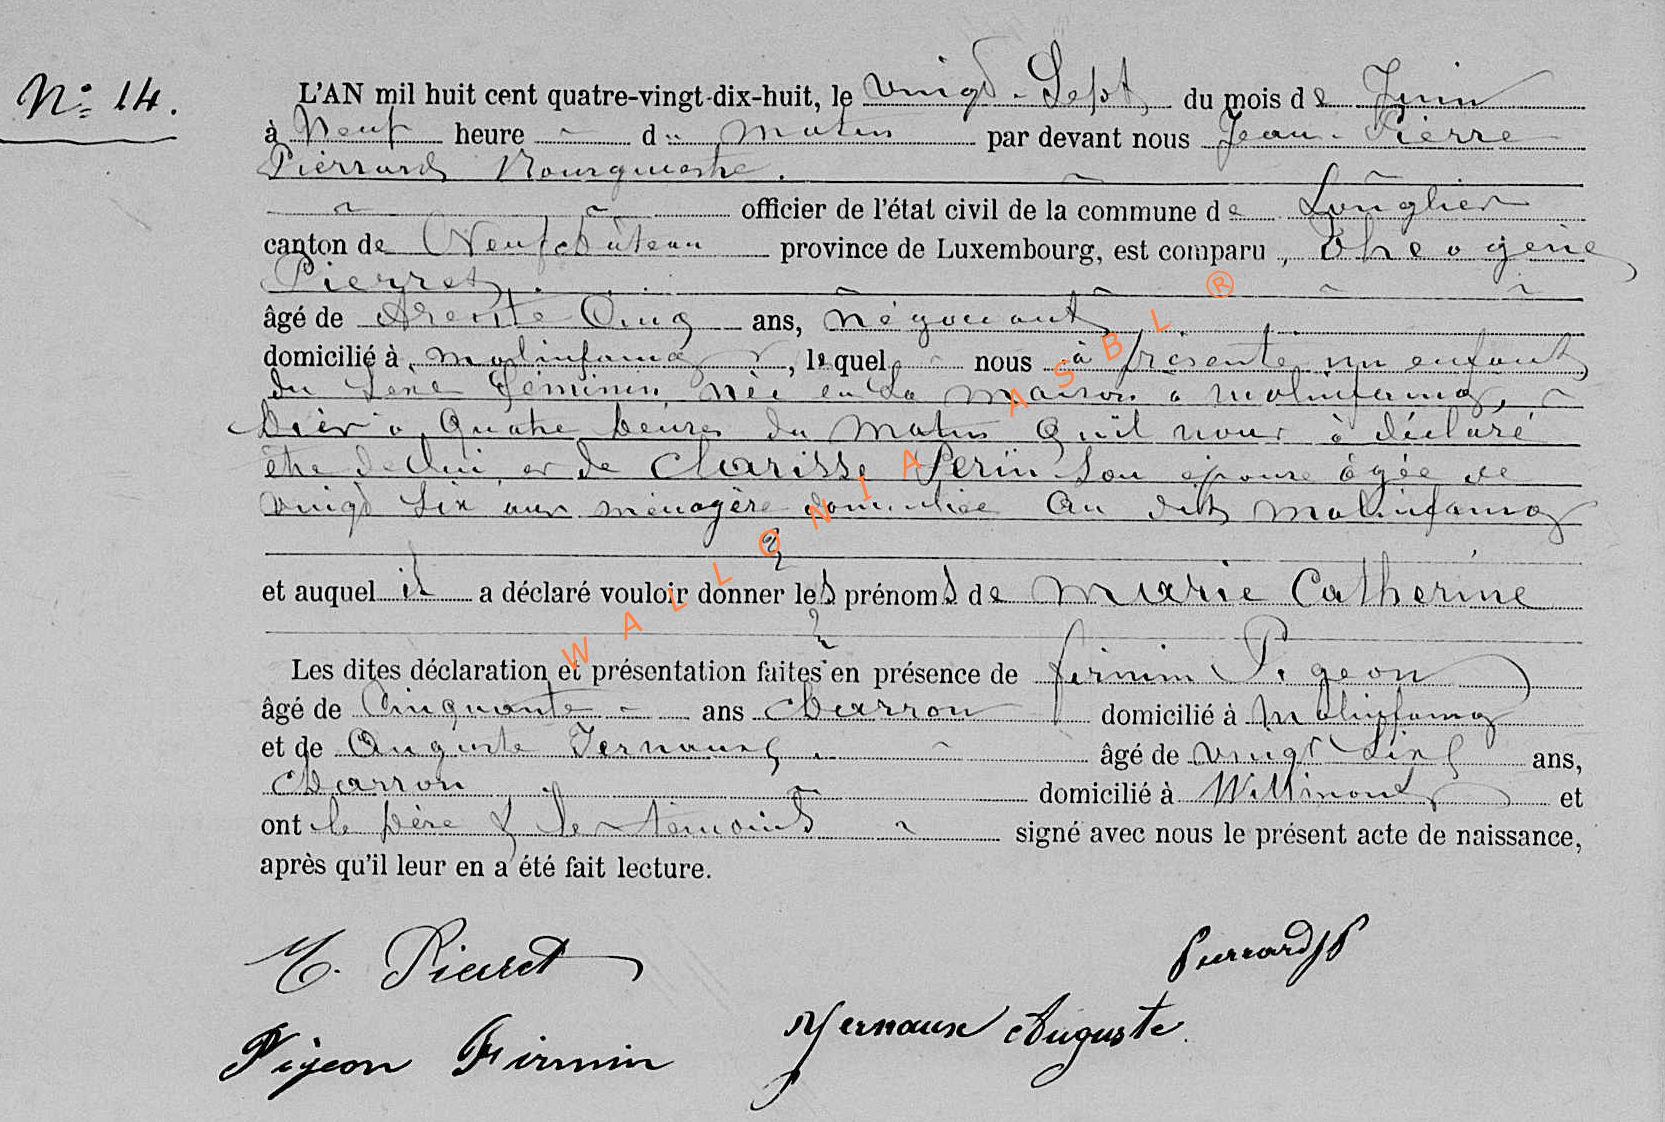 N° 14.
L'AN mil huit cent quatre-vingt-dix-huit, le vingt-Sept, du mois de Juin
à Neuf heure du matin par devant nous Jean-Pierre
Pierrard Bourgmestre.
officier de l'état civil de la commune de Longlier
canton de Neufchâteau province de Luxembourg, est comparu, Théogène
Pierret,
âgé de trente Cinq ans, négociant
domicilié à molinfaing, lequel nous à présenté un enfant
du sexe féminin, née en sa maison a molinfaing,
hier à quatre heures du matin qu'il nous à déclaré
être de lui et de Clarisse Perin son épouse âgée de
vingt six ans ménagère domiciliée au dit molinfaing
et auquel il a déclaré vouloir donner les prénoms de Marie Catherine
Les dites déclaration et présentation faites en présence de firmin Pigeon
âgé de Cinquante ans charron domicilié à molinfaing
et de Auguste Jernaux âgé de vingt six ans,
charron domicilié à Willimont et
ont le père & les témoins signé avec nous le présent acte de naissance,
après qu'il leur en a été fait lecture.
T. Pierret
Pierrard JP
Pigeon Firmin
Jernaux Auguste.
WALLONIA ASBL ®